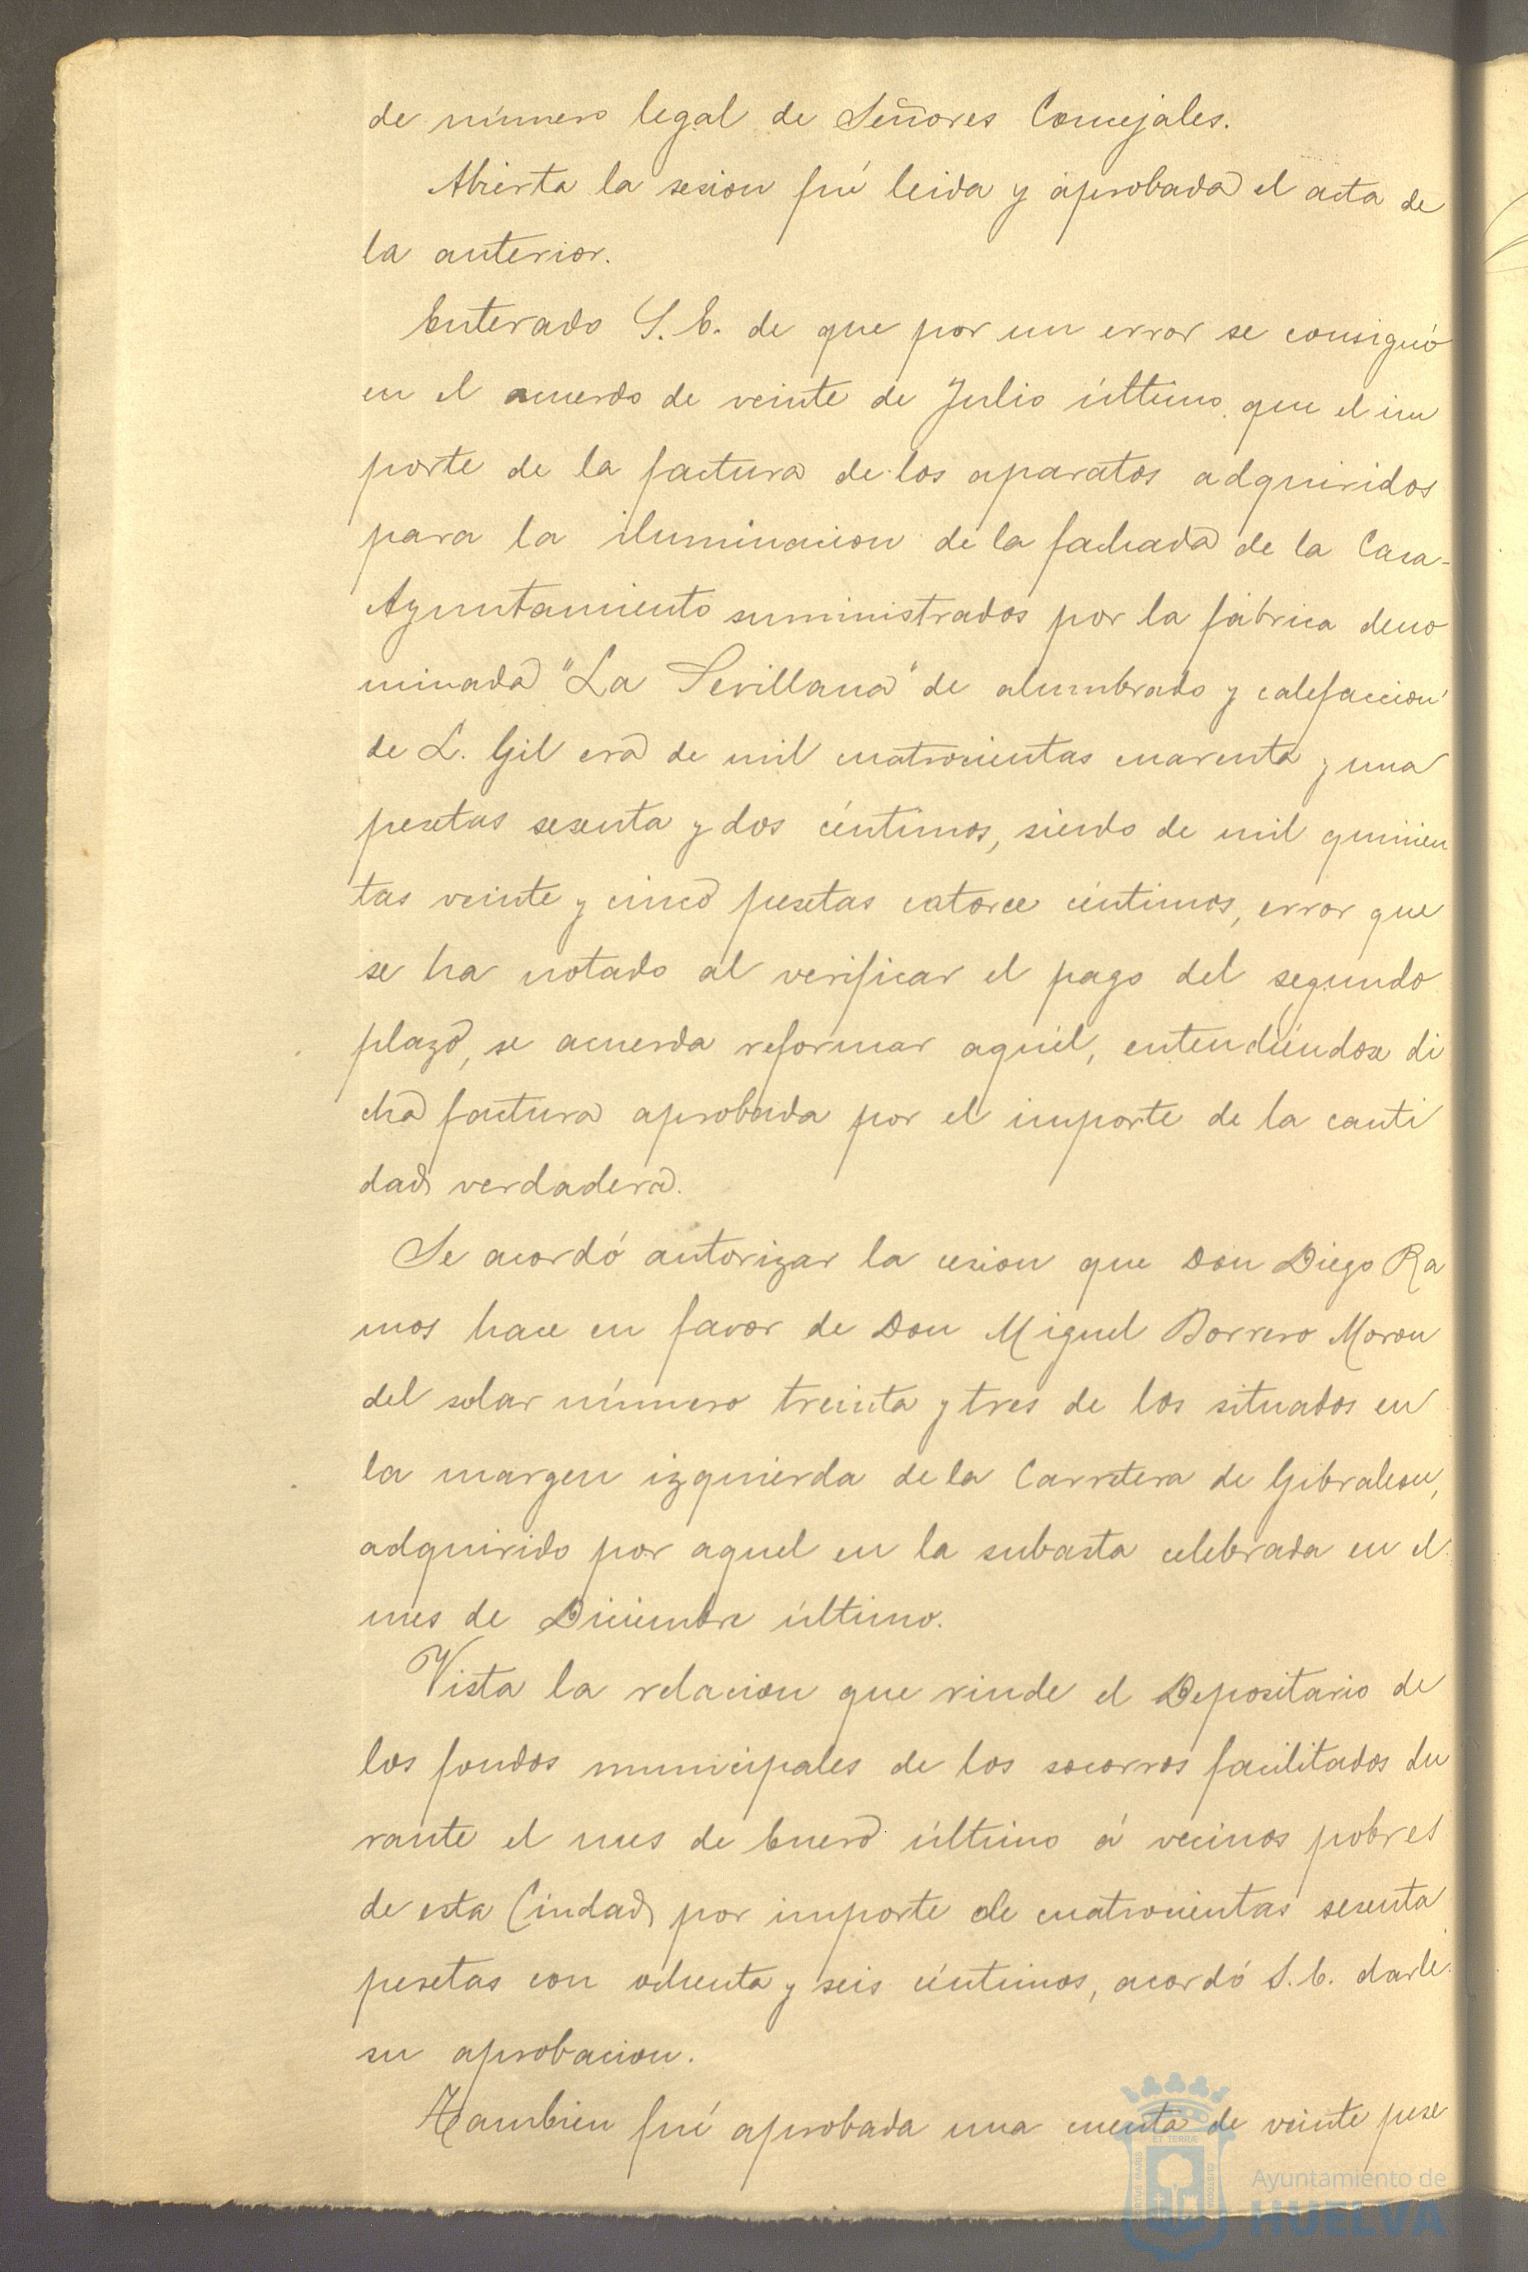 de número legal de Señores Concejales.
Abierta la sesion fué leida y aprobada el acta de
la anterior.
Enterado S. E. de que por un error se consignó
en el acuerdo de veinte de Julio último, que el im
porte de la factura de los aparatos adquiridos
para la iluminacion de la fachada de la Casa-
Ayuntamiento suministrados por la fábrica deno
minada "La Sevillana" de alumbrado y calefaccion
de L. Gil era de mil cuatrocientas cuarenta y una
pesetas sesenta y dos céntimos, siendo de mil quinien
tas veinte y cinco pesetas catorce céntimos, error que
se ha notado al verificar el pago del segundo
plazo, se acuerda reformar aquél, entendiéndose di
cha factura aprobada por el importe de la canti
dad verdadera.
Se acordó autorizar la cesion que Don Diego Ra
mos hace en favor de Don Miguel Borrero Moron
del solar número treinta y tres de los situados en
la margen izquierda de la Carretera de Gibraleon,
adquirido por aquel en la subasta celebrada en el
mes de Diciembre último.
Vista la relacion que rinde el Depositario de
los fondos municipales de los socorros facilitados du
rante el mes de Enero último á vecinos pobres
de esta Ciudad por importe de cuatrocientas sesenta
pesetas con ochenta y seis céntimos, acordó S. E. darle
su aprobacion.
Tambien fué aprobada una cuenta de veinte pese
Ayuntamiento de
HUELVA